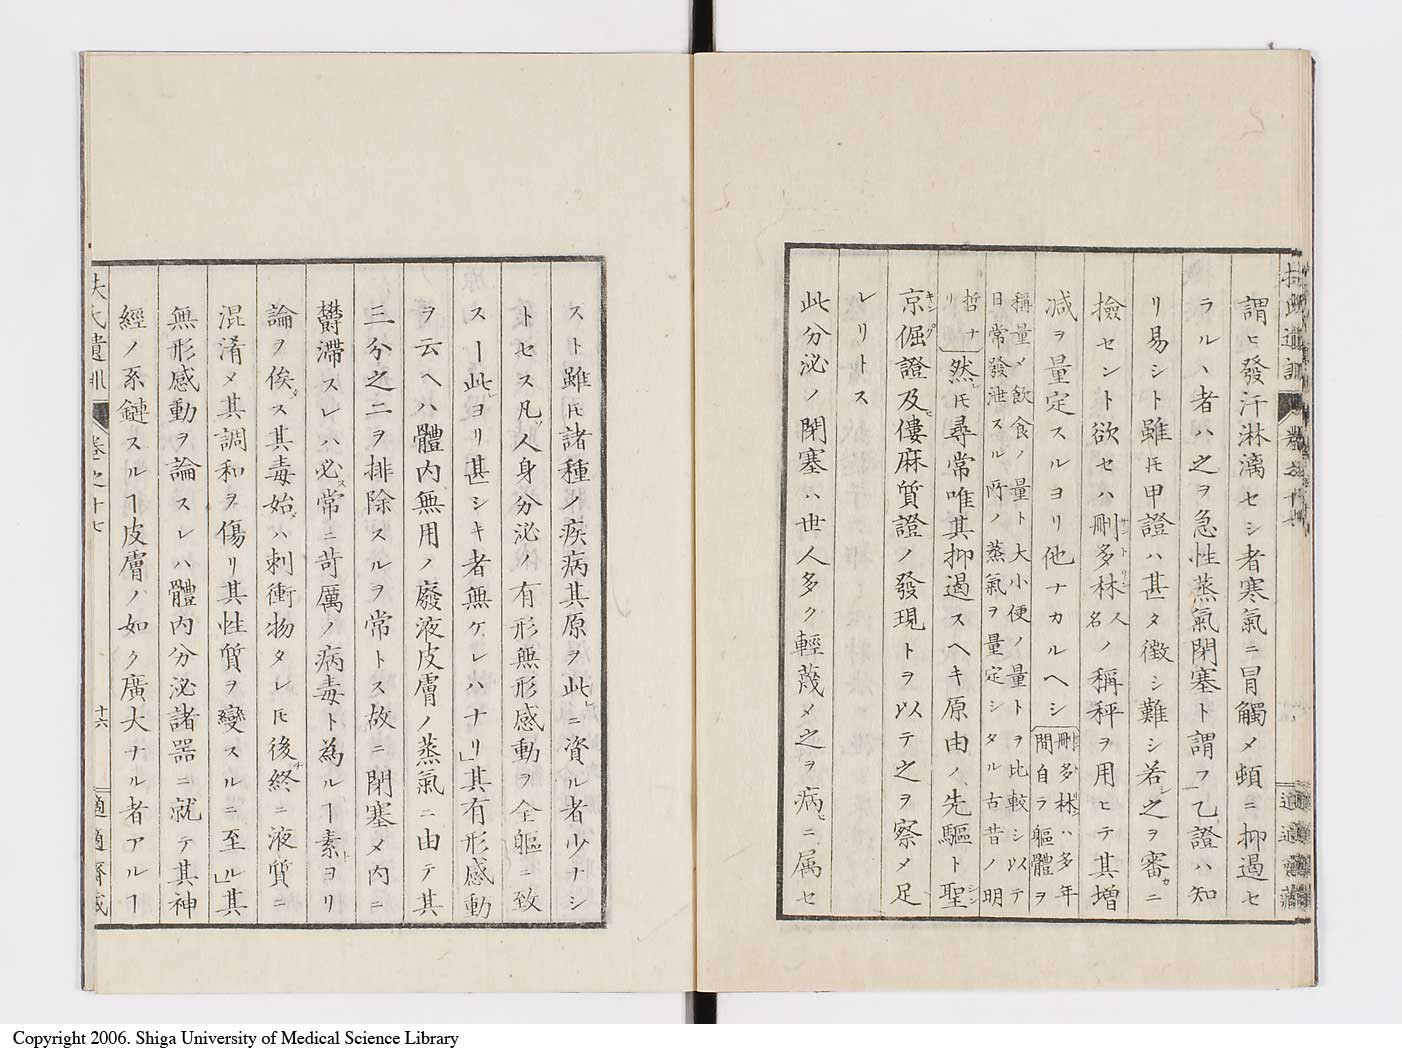 謂ヒ發汗淋漓セシ者寒氣ニ冒觸メ頓ニ抑遏セ
ラル丶者ハ之ヲ急性蒸氣閉塞ト謂フ乙證ハ知
リ易シト雖𪜈甲證ハ甚タ徴シ難シ若シ之ヲ審カニ
撿セント欲セハ刪多林サントリン人名ノ稱秤ヲ用ヒテ其增
減ヲ量定スルヨリ他ナカルヘシ刪多林ハ多年
間自ラ軀體ヲ
稱量メ飲食ノ量ト大小便ノ量トヲ比較シ以テ
日常發泄スル所ノ蒸氣ヲ量定シタル古昔ノ明
哲ナ
リ
然レ𪜈尋常唯其抑遏スヘキ原由ノ先驅ト聖シン
京キン倔グ證及ヒ僂麻質證ノ發現トヲ以テ之ヲ察メ足
レリトス
此分泌ノ閉塞ハ世人多ク輕蔑メ之ヲ病ヒニ属セ
扶氏遺訓 卷之十七
適適齋藏
スト雖𪜈諸種ノ疾病其原ヲ此レニ資ル者少ナシ
トセス凡ソ人身分泌ノ有形無形感動ヲ全軀ニ致
スヿ此レヨリ甚シキ者無ケレハナリ」其有形感動
ヲ云ヘハ體内無用ノ廢液皮膚ノ蒸氣ニ由テ其
三分之二ヲ排除スルヲ常トス故ニ閉塞メ内ニ
欝滯スレハ必ス常ニ苛厲ノ病毒ト為ルヿ素トヨリ
論ヲ俟タス其毒始メハ刺衝物タレ𪜈後終ニ液質ニ
混淆メ其調和ヲ傷リ其性質ヲ變スルニ至ル」其
無形感動ヲ論スレハ體内分泌諸器ニ就テ其神
經ノ系鏈スルヿ皮膚ノ如ク廣大ナル者アルヿ
扶氏遺訓 卷之十七
十六
適適齋藏
Copyright 2006. Shiga University of Medical Science Library